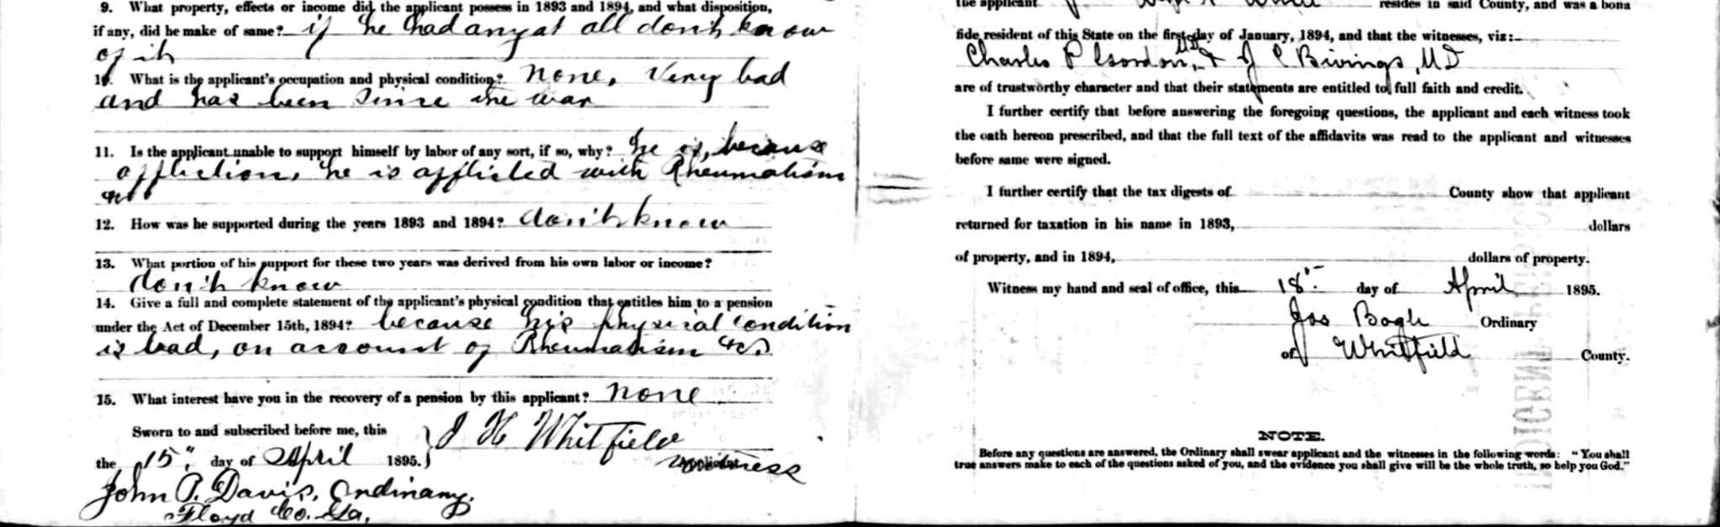 9. What property, effects or income did the applicant possess in 1893 and 1894, and what disposition,
if any, did he make of same? if he had any at all don't know
of it
10. What is the applicant's occupation and physical condition? none, Very bad
and has been since the war
11. Is the applicant unable to support himself by labor of any sort, if so, why? he is, because
affliction, he is afflicted with Rheumatism
&c
12. How was he supported during the years 1893 and 1894? don't know
13. What portion of his support for these two years was derived from his own labor or income?
don't know
14. Give a full and complete statement of the applicant's physical condition that entitles him to a pension
under the Act of December 15th, 1894? because his physical condition
is bad, on account of Rheumatism &c.
15. What interest have you in the recovery of a pension by this applicant? none
Sworn to and subscribed before me, this
the 15" day of April 1895.
J H Whitfield
witness
John P. Davis, Ordinary,
Floyd Co. Ga.
the applicant resides in said County, and was a bona
fide resident of this State on the first day of January, 1894, and that the witnesses, viz:
Charles P Gordon, & J C Bivings, MD
are of trustworthy character and that their statements are entitled to full faith and credit.
I further certify that before answering the foregoing questions, the applicant and each witness took
the oath hereon prescribed, and that the full text of the affidavits was read to the applicant and witnesses
before same were signed.
I further certify that the tax digests of County show that applicant
returned for taxation in his name in 1893, dollars
of property, and in 1894, dollars of property.
Witness my hand and seal of office, this 18" day of April 1895.
Jos Bogle Ordinary
of Whitfield County.
NOTE.
Before any questions are answered, the Ordinary shall swear applicant and the witnesses in the following words: "You shall
true answers make to each of the questions asked of you, and the evidence you shall give will be the whole truth, so help you God."